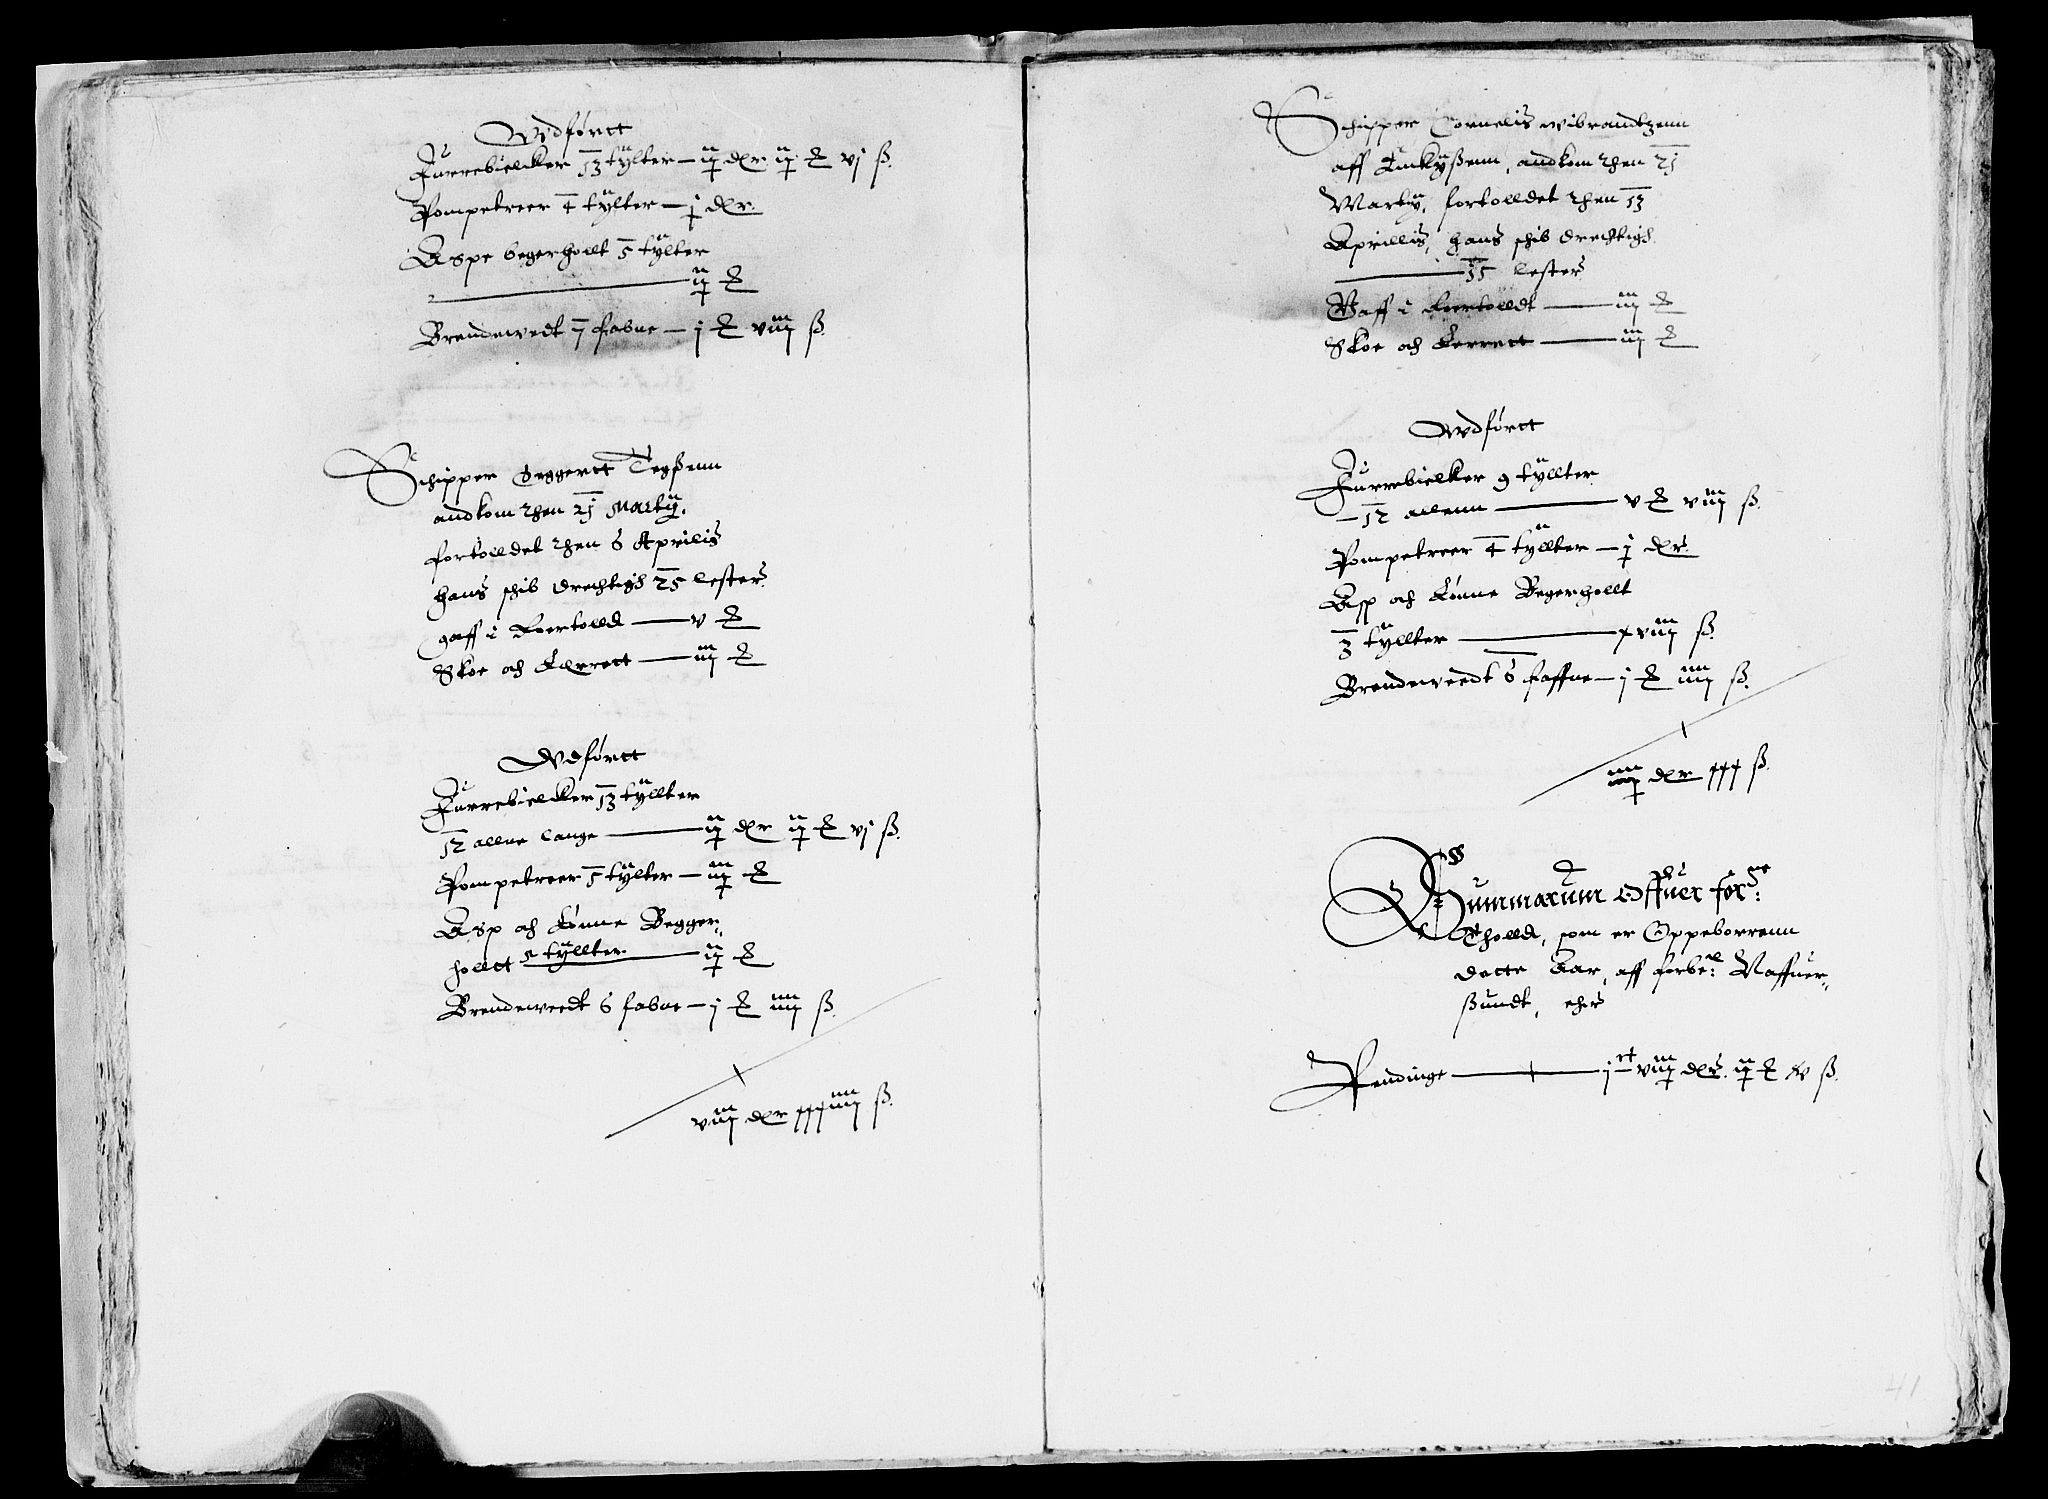 Wdførtt
Furrebielcker 13 tÿlter — ij dlr ij ℔ vj ß.
Pompetreer 4 tÿlter — j dlr.
Aspe begerhollt 5 tÿlter
— ij ℔
Brendewedt 7 fabne — j ℔ viij ß.
Schipper Eggertt Tegßenn
andkom thend 21 Martij.
fortolldet thend 6 Aprilis
hans schib drechtigh 25 lester.
gaff i Feertolld — v ℔
Skoe och Kerrett — iij ℔
Wdførtt
Furrebielcker 13 tÿllter
12 allne lange — ij dlr ij ℔ vj ß.
Pompetreer 5 tÿlter — iij ℔
Asp och Lønne Begger-
hollt 5 tÿllter — ij ℔
Brendeweedt 6 fabne — j ℔ iiij ß.
viij dlr xxxiiij ß.
Schipper Cornelis wibrandtzenn
aff Enckÿßenn, andkom thend 21
Martij, fortolldet thend 13
Aprillis, hans schib drechtigh
— 35 lester
Gaff i Feertolldt — iij ℔
Skoe och Kerrett — iij ℔
Wdførtt
Furrebielker 9 tÿllter
12 allenn — v ℔ viij ß.
Pompetreer 4 tÿllter — j dlr.
Asp och Lønne Begerhollt
3 tÿllter — xviij ß.
Brendeweedt 6 faffne — j ℔ iiij ß.
iiij dlr xxx ß.
Summarum Offuer for:ne
Tholld, som er Oppeborrenn
dette Aar, aff forbe:te Naffuer-
ßundt, ehr
Pendinge — jct viij dlr. ij ℔ xv ß.
41